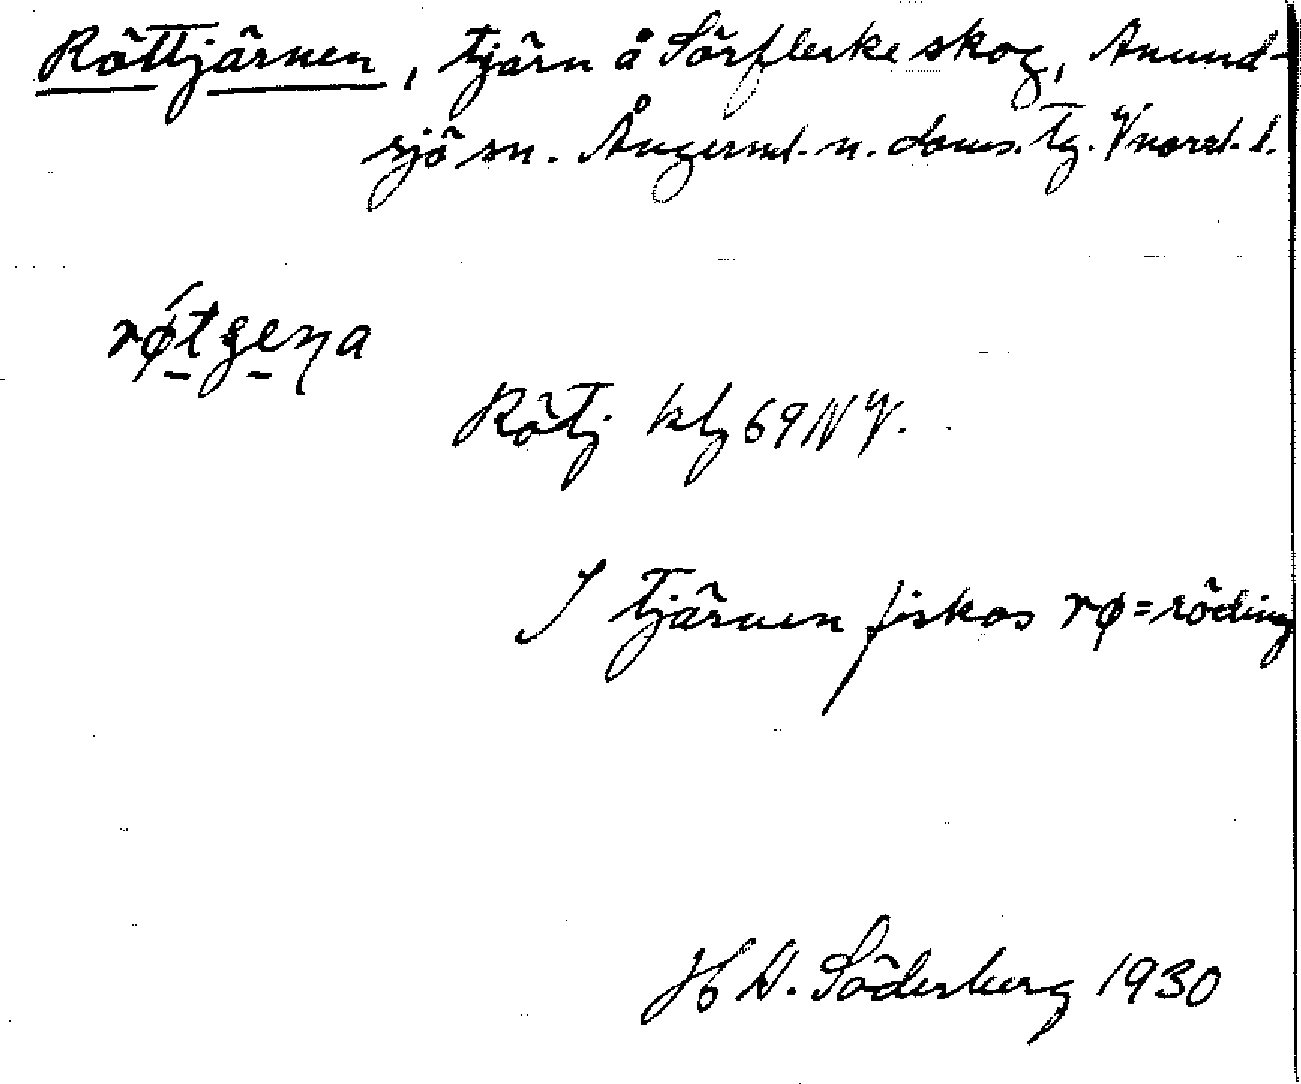 Röttjärnen, tjärn å Sörflerke skog, Anund-
sjö sn. Ångerml. n. doms. tg. Vnorrl. l.
røtgeṇa
Rötj kbl 69 NV.
I tjärnen fiskas rø = röding
H D. Söderberg 1930